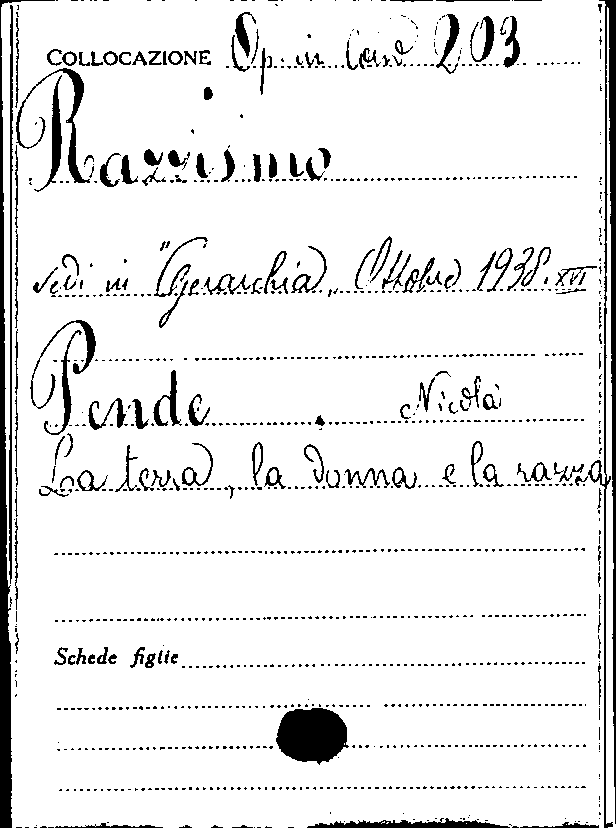 COLLOCAZIONE Op. in Cont 203
Razzismo
vedi in "Gerarchia„ Ottobre 1938. XVI
Pende. Nicola
La terra, la donna e la razza
Schede figlie